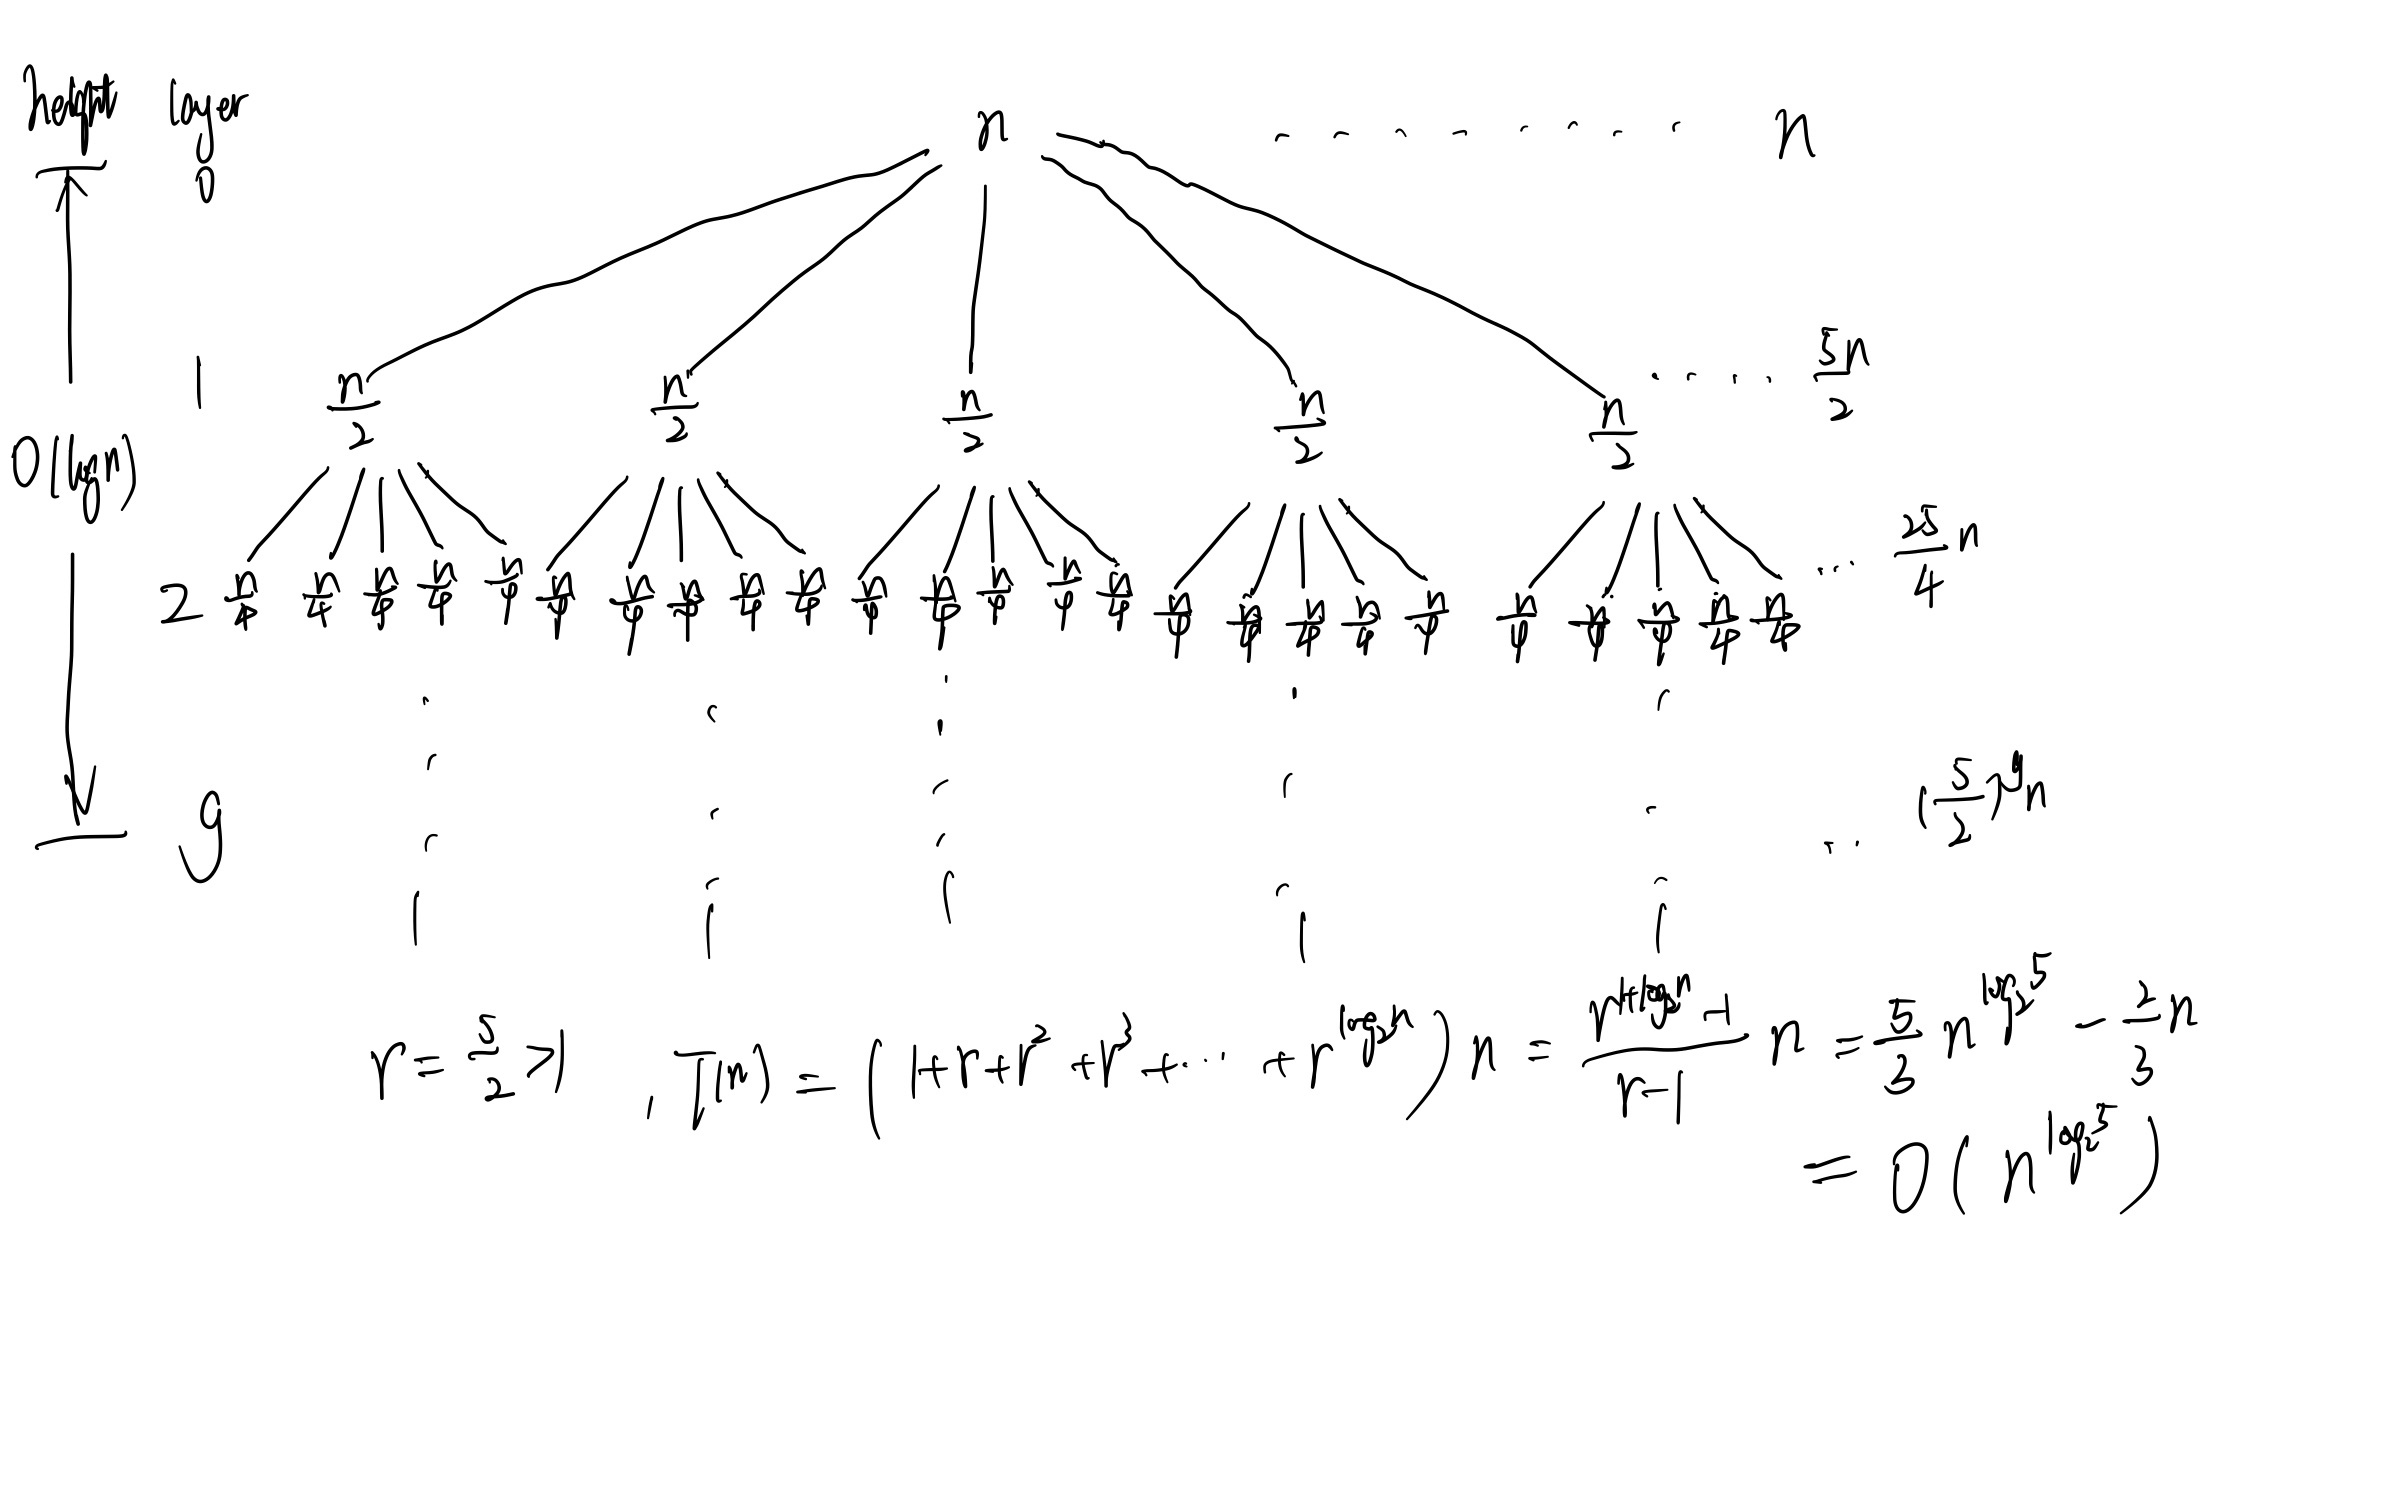 height layer n - - - - - - - - n
0
1 n/2 n/2 n/2 n/2 n/2 .... 5/2 n
O(lgn)
2 n/4 n/4 n/4 n/4 n/4 n/4 n/4 n/4 n/4 n/4 n/4 n/4 n/4 n/4 n/4 n/4 n/4 n/4 n/4 n/4 n/4 n/4 n/4 n/4 n/4 ... 25/4 n
g .. (5/2)^g n
1 1 1 1 1
r = 5/2 > 1, T(n) = (1+r+r^2+r^3+...+r^(log_2 n)) n = (r^(1+log_2 n) - 1)/(r-1) n = 5/3 n^(log_2 5) - 2/3 n
= O(n^(log_2 5))